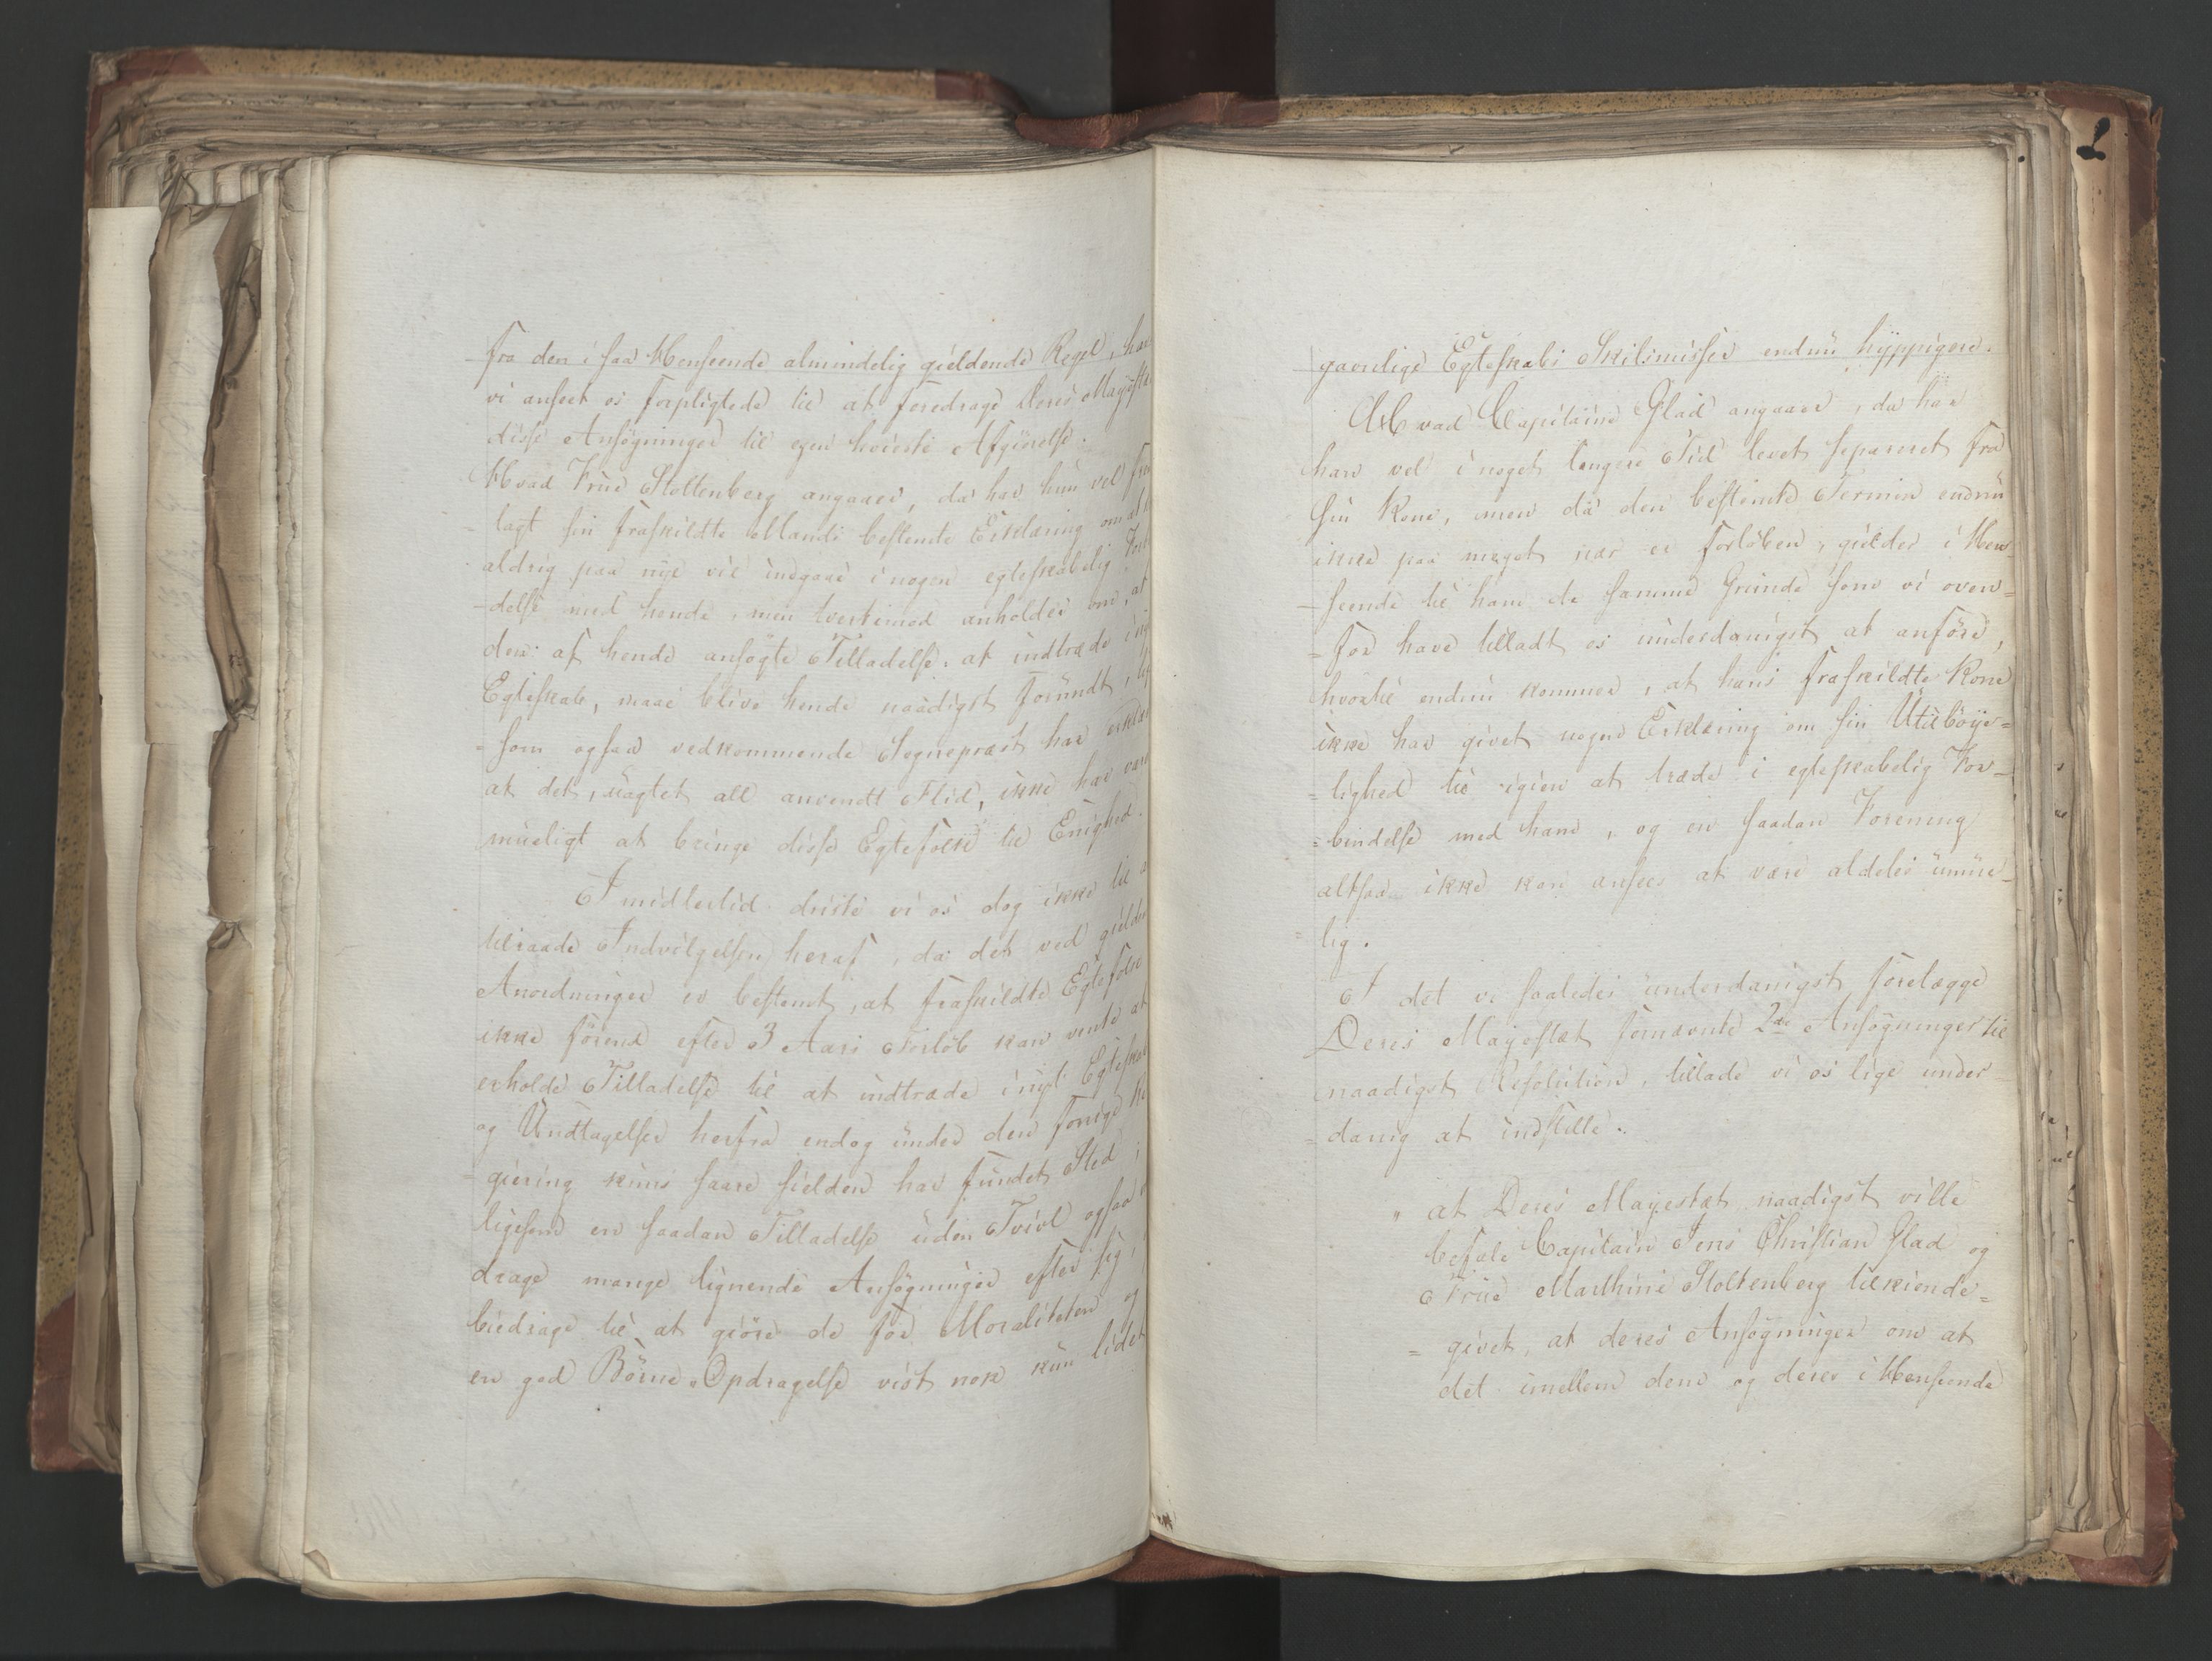 fra den i saa Henseende almindelig gieldende Regel, har
vi anseet os forpligtede til at foredrage Deres Mayestæt
disse Ansøgninger til egen høieste Afgiørelse.
Hvad Frue Stoltenberg angaaer, da har hun vel frem
lagt sin fraskildte Mands bestemte Erklæring om at
aldrig paa nye vil indgaae i nogen egteskabelig For
-delse med hende, men tvertimod anholder om, at
den af hende ansøgte Tilladelse, at indtræde i nyt
Egteskab, maae blive hende naadigst forundt,
- som ogsaa vedkommende Sognepræst har erklæret
at det, uagtet all anvendt Flid, ikke har været
mueligt at bringe disse Egtefolk til Enighed.
Imidlertid driste vi os dog ikke til at
tilraade Indvilgelsen heraf, da det ved gieldende
Anordninger er bestemt, at fraskildte Egtefolk
ikke førend efter 3 Aars Forløb kan vente at
erholde Tilladelse til at indtræde i nyt Egteskab
og Undtagelser herfra endog under den forrige Re
- giering kuns saare sielden har fundet Sted,
ligesom en saadan Tilladelse uden Tvivl ogsaa
drage mange lignende Ansøgninger efter sig,
biedrage til at giøre de for Moraliteten og
en god Børne-Opdragelse vist nok kun lidet
gavnlige Egteskabs Skilsmisser endnu hyppigere.
Hvad Capitaine Glad angaaer, da har
han vel i noget længere Tid levet separeret fra
sin Kone, men da den bestemte Termin endnu
ikke paa meget nær er forløben, gielder i Hen-
- seende til ham de samme Grunde som vi oven=
= for have tilladt os underdanigst at anføre,
hvortil endnu kommer, at hans fraskildte Kone
ikke har givet nogen Erklæring om sin Utilbøye=
= lighed til igien at træde i egteskabelig For-
= bindelse med ham, og en saadan Forening
altsaa ikke kan ansees at være aldeles umue-
= lig.
I det vi saaledes underdanigst forelægge
Deres Mayestæt fornævnte 2de Ansøgninger til
naadigst Resolution, tillade vi os lige under-
= danig at indstille:
" at Deres Mayestæt naadigst ville
befale Capitain Jens Christian Glad og
Frue Marthine Stoltenberg tilkiende=
= givet, at deres Ansøgninger om at
det imellem dem og deres i Henseende